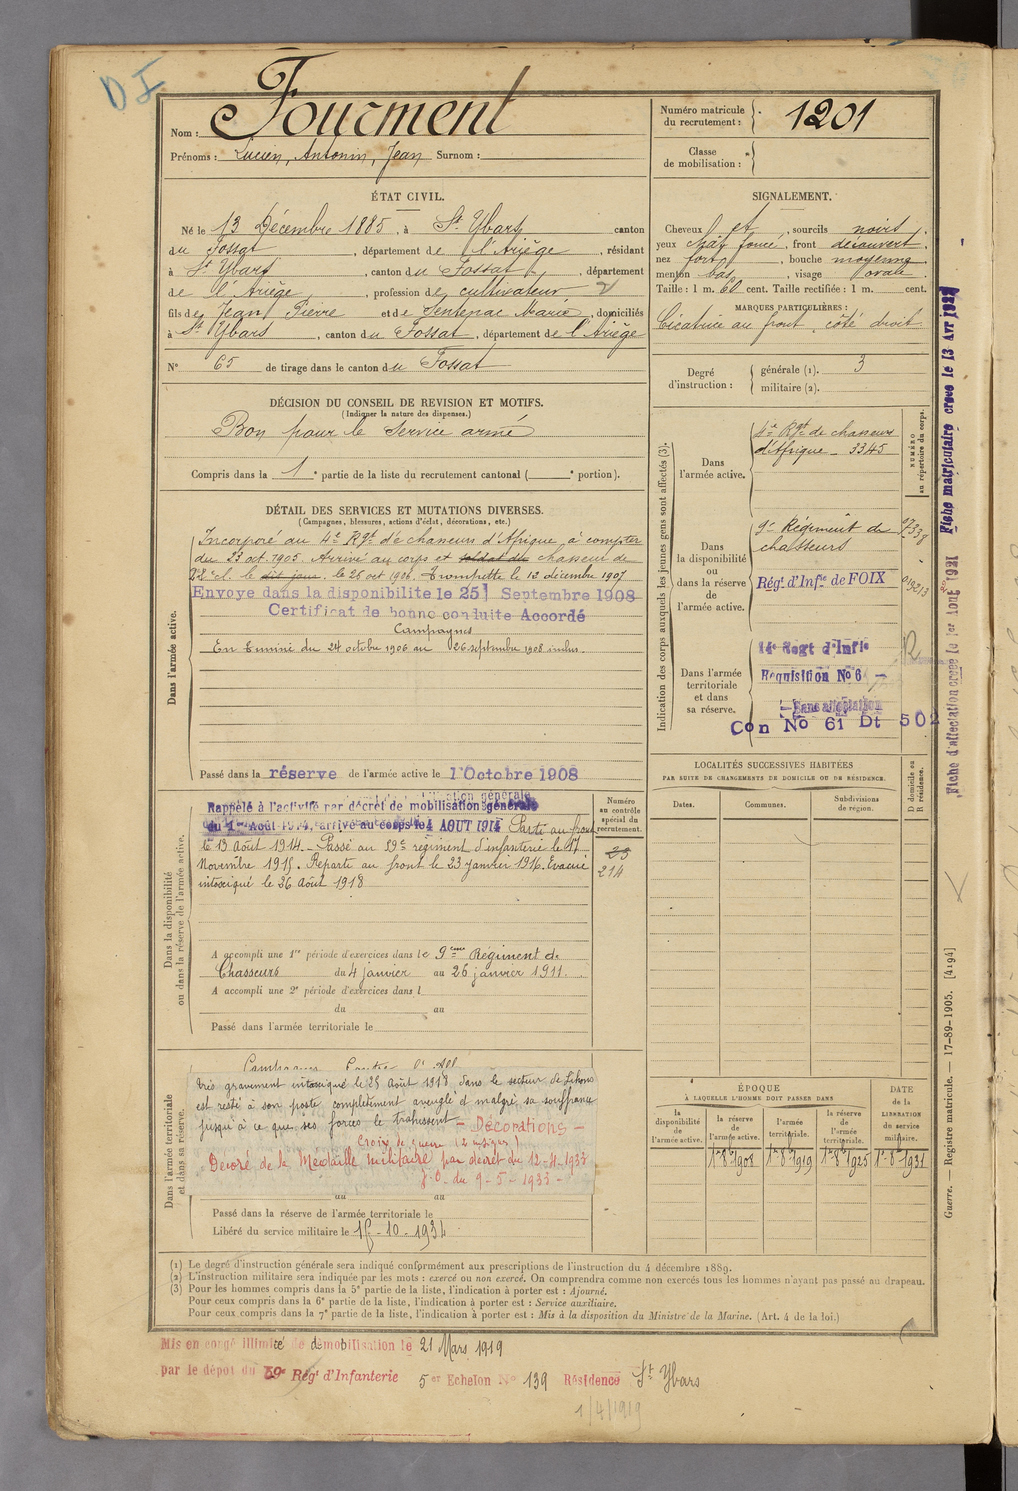 DI
Nom : Fourment
Prénoms : Lucien, Antonin, Jean Surnom :
Numéro matricule du recrutement : 1201
Classe de mobilisation :
ÉTAT CIVIL.
Né le 13 Décembre 1885, à St Ybars, canton
du Fossat, département de l'Ariège, résidant
à St Ybars, canton du Fossat, département
de l'Ariège, profession de cultivateur
fils de Jean Pierre et de Sentenac Marie, domiciliés
à St Ybars, canton du Fossat, département de l'Ariège
N° 65 de tirage dans le canton du Fossat
SIGNALEMENT.
Cheveux et, sourcils noirs.
yeux chât. foncé, front découvert.
nez fort, bouche moyenne
menton bas, visage ovale.
Taille : 1 m. 60 cent. Taille rectifiée : 1 m. cent.
MARQUES PARTICULIÈRES :
Cicatrice au front, côté droit
Degré d'instruction : générale (1). 3
militaire (2).
DÉCISION DU CONSEIL DE REVISION ET MOTIFS.
(Indiquer la nature des dispenses.)
Bon pour le Service armé
Compris dans la 1e partie de la liste du recrutement cantonal ( e portion).
DÉTAIL DES SERVICES ET MUTATIONS DIVERSES.
(Campagnes, blessures, actions d'éclat, décorations, etc.)
Dans l'armée active.
Incorporé au 4e Rgt de chasseurs d'Afrique à compter
du 23 oct. 1905. Arrivé au corps et soldat du chasseur de
2e cl. le dit jour, le 25 oct 1906. Trompette le 12 décembre 1907
Envoye dans la disponibilite le 25 Septembre 1908
Certificat de bonne conduite Accordé
Campagnes
En Tunisie du 24 octobre 1906 au 26 septembre 1908 inclus.
Passé dans la réserve de l'armée active le 1 Octobre 1908
Indication des corps auxquels les jeunes gens sont affectés (3).
NUMÉRO au répertoire du corps.
Dans l'armée active.
4e Rgt de chasseurs
d'Afrique - 3345
Dans la disponibilité ou dans la réserve de l'armée active.
9e Régiment de
chasseurs
Régt. d'Infie de FOIX
Dans l'armée territoriale et dans sa réserve.
14e Regt d'Infie
Requisition No 6
Sans affectation
Con No 61 Dt 502
LOCALITÉS SUCCESSIVES HABITÉES
PAR SUITE DE CHANGEMENTS DE DOMICILE OU DE RÉSIDENCE.
Dates. Communes. Subdivisions de région. D domicile ou R résidence.
Dans la disponibilité ou dans la réserve de l'armée active.
Rappelé à l'activité par décret de mobilisation générale
du 1er Août 1914, arrivé au corps le 4 AOUT 1914 Parti au front
le 13 Août 1914. - Passé au 59e régiment d'infanterie le 17
Novembre 1915. Reparti au front le 23 janvier 1916. Evacué
intoxiqué le 26 Août 1918
Numéro au contrôle spécial du recrutement.
23
214
A accompli une 1re période d'exercices dans le 9ème Régiment de
Chasseurs du 4 janvier au 26 janvier 1911.
A accompli une 2e période d'exercices dans l
du au
Passé dans l'armée territoriale le
Dans l'armée territoriale et dans sa réserve.
Campagnes Contre l'All
très gravement intoxiqué le 25 Août 1918 dans le secteur de
est resté à son poste complètement aveuglé et malgré sa souffrance
jusqu'à ce que ses forces le trahissent - Décorations -
Croix de guerre
Décoré de la Médaille militaire par décret du 12-4-1933
J.O. du 9-5-1933 -
au au
Passé dans la réserve de l'armée territoriale le
Libéré du service militaire le 15-10-1934
ÉPOQUE
À LAQUELLE L'HOMME DOIT PASSER DANS
la disponibilité de l'armée active. la réserve de l'armée active. l'armée territoriale. la réserve de l'armée territoriale.
DATE de la LIBÉRATION du service militaire.
1er 8bre 1908 1er 8bre 1919 1er 8bre 1925 1er 8bre 1931
(1) Le degré d'instruction générale sera indiqué conformément aux prescriptions de l'instruction du 4 décembre 1889.
(2) L'instruction militaire sera indiquée par les mots : exercé ou non exercé. On comprendra comme non exercés tous les hommes n'ayant pas passé au drapeau.
(3) Pour les hommes compris dans la 5e partie de la liste, l'indication à porter est : Ajourné.
Pour ceux compris dans la 6e partie de la liste, l'indication à porter est : Service auxiliaire.
Pour ceux compris dans la 7e partie de la liste, l'indication à porter est : Mis à la disposition du Ministre de la Marine. (Art. 4 de la loi.)
Mis en congé illimité de démobilisation le 21 Mars 1919
par le dépôt du 59e Rég. d'Infanterie 5er Echelon No 139 Résidence St Ybars
1/4/1919
Fiche matriculaire creee le 13 Avr 1927
Fiche d'affectation creee le 1er Août 1921
Guerre. — Registre matricule. — 17-89-1905. [4194]